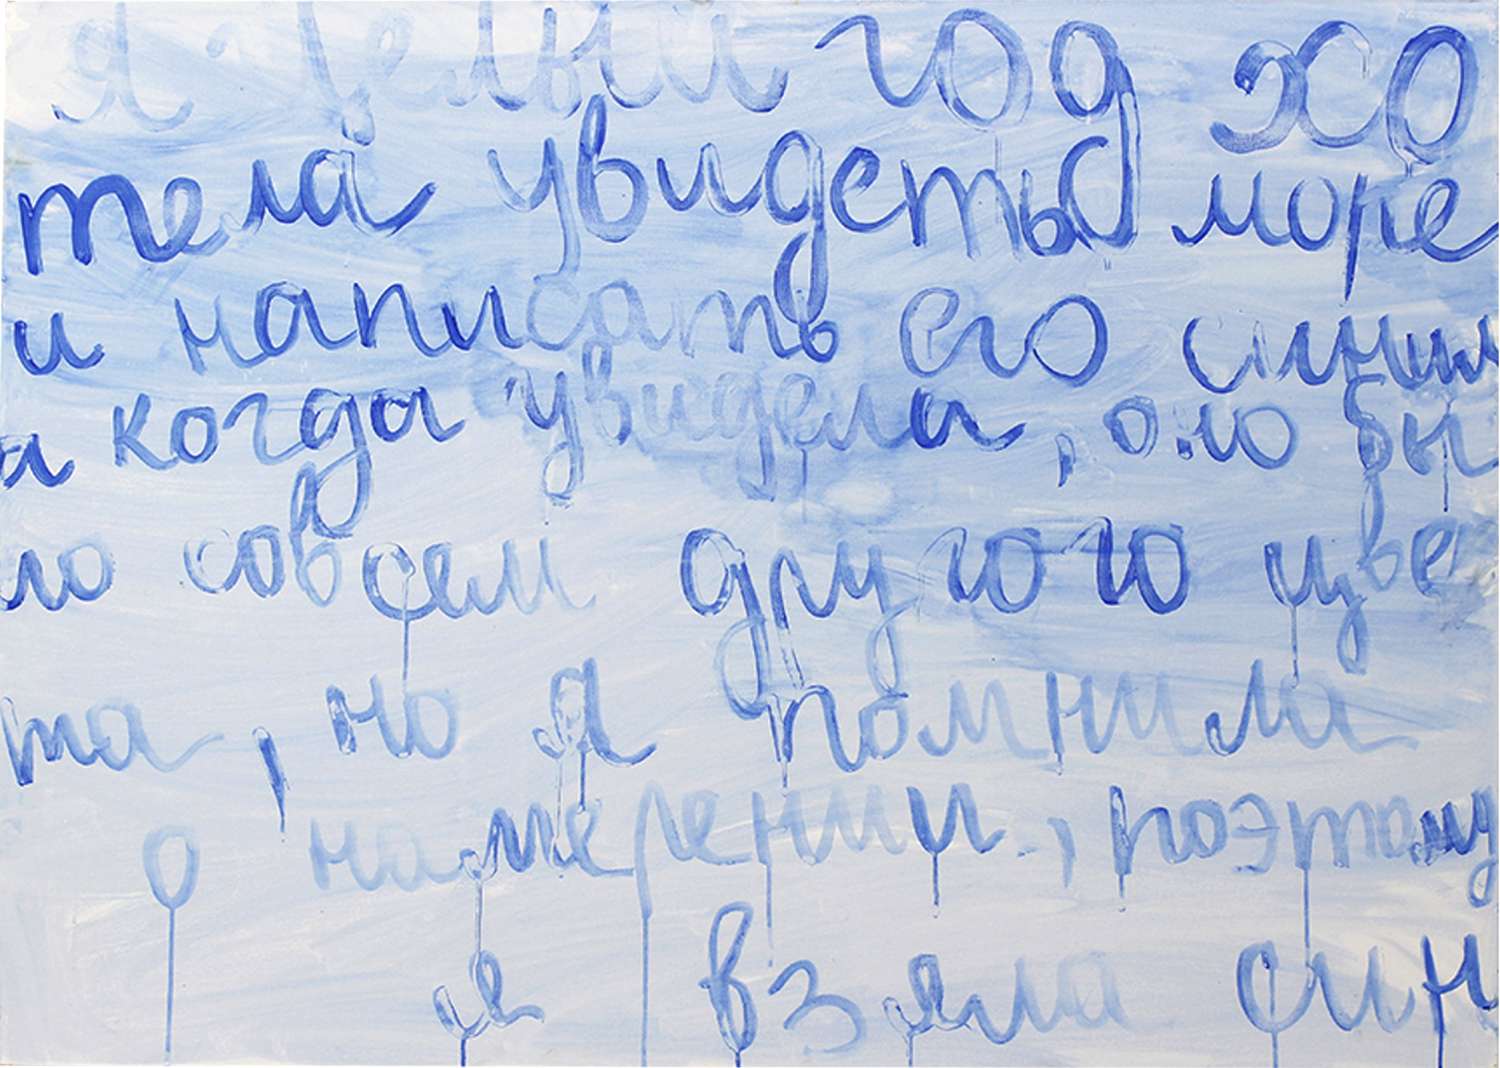 я целый год хо
тела увидеть море
и написать его синим
а когда увидела, оно бы
ло совсем другого цве
та, но я помнила
о намерении, поэтому
я взяла син